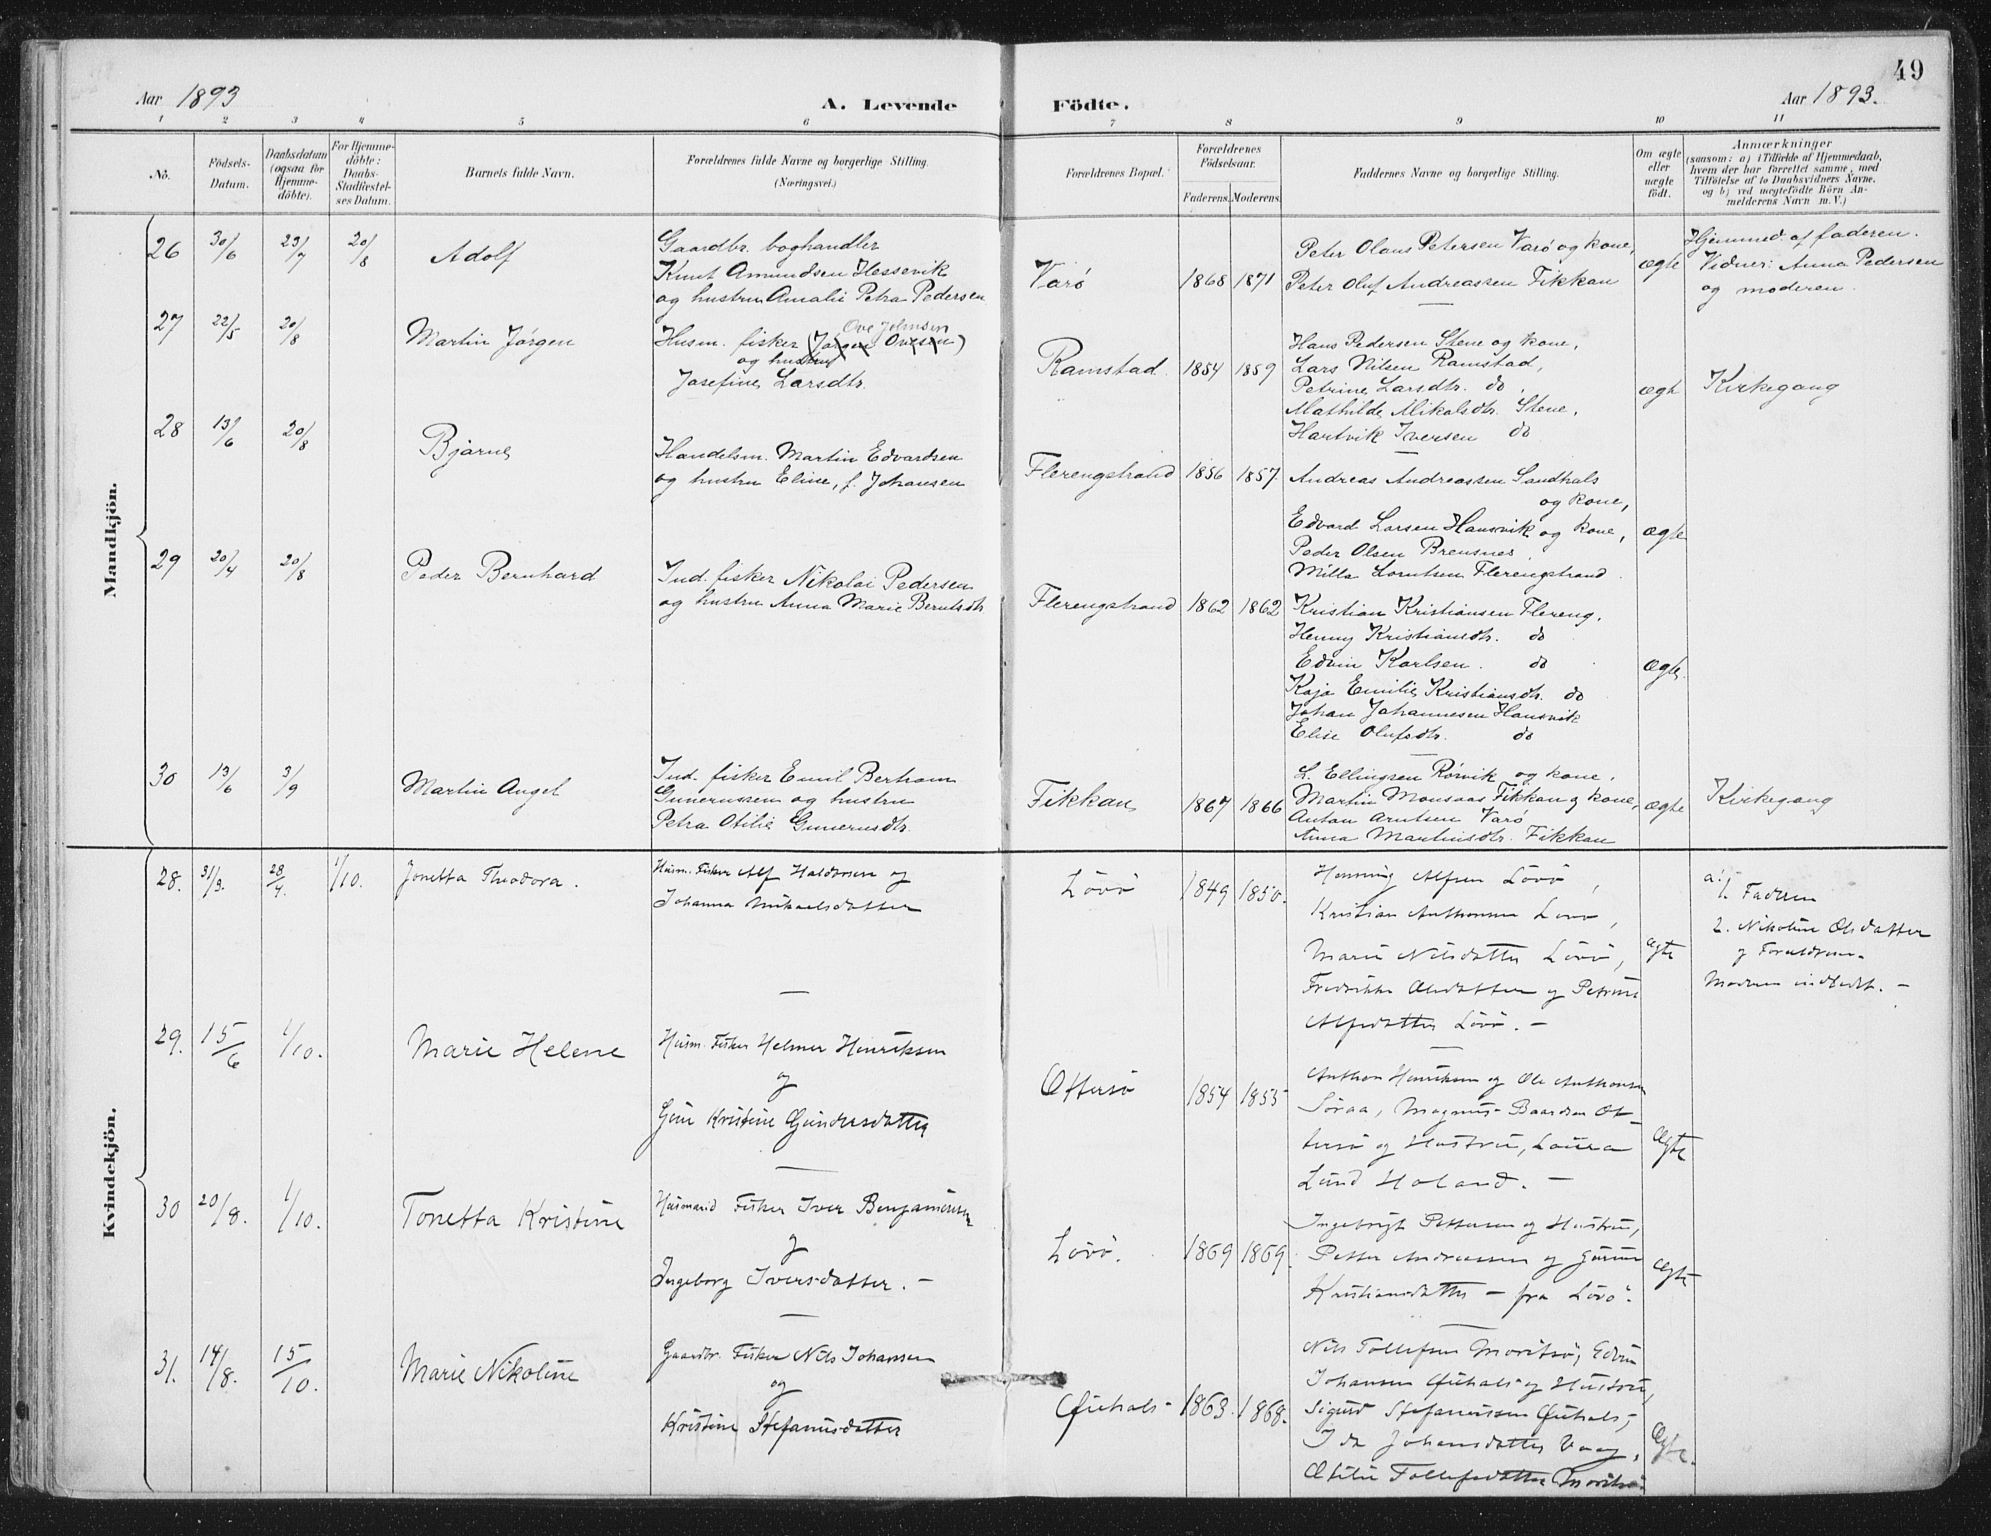 49
Aar 1893
A. Levende Födte.
Aar 1893.
1 2 3 4 5 6 7 8 9 10 11
No.
Födsels-
Datum.
Daabsdatum
(ogsaa for
Hjemme-
döbte).
For Hjemme-
döbte:
Daabs-
Stadfæstel-
ses Datum.
Barnets fulde Navn.
Forældrenes fulde Navne og borgerlige Stilling.
(Næringsvei.)
Forældrenes Bopæl.
Forældrenes
Födselsaar.
Faderens. Moderens.
Faddernes Navne og borgerlige Stilling.
Om ægte
eller
uægte
födt.
Anmærkninger
(saasom: a) i Tilfælde af Hjemmedaab,
hvem der har forrettet samme, med
Tilföielse af to Daabsvidners Navne.
og b) ved uægtefödte Börn An-
melderens Navn m. V.)
Mandkjön.
26 30/6 23/7 20/8 Adolf
Gaardbr. boghandler
Knut Amundsen Hessevik
og hustru Amalie Petra Pedersen
Varö 1868 1871
Peter Olaus Petersen Varö og kone,
Peter Oluf Andreassen Fikkan
ægte
Hjemmed. af faderen.
Vidner: Anna Pedersen
og moderen.
27 22/5 20/8 Martin Jörgen
Ove Johnsen
Husm. fisker (Jörgen Ovesen)
og hustru
Josefine Larsdtr.
Ramstad 1854 1859
Hans Pedersen Stene og kone,
Lars Nilsen Ramstad,
Petrine Larsdtr. do,
Mathilde Mikalsdtr. Stene,
Hartvik Iversen do
ægte
Kirkegang
28 13/6 20/8 Bjarne
Handelsm. Martin Edvardsen
og hustru Eline, f. Johansen
Flerengstrand 1856 1857
Andreas Andreassen Sandhals
og kone,
Edvard Larsen Hansvik og kone,
Peder Olsen Brensnes,
Milla Lorntsen Flerengstrand
ægte
29 20/4 20/8 Peder Bernhard
Ind. fisker Nikolai Pedersen
og hustru Anna Marie Berntsdtr
Flerengstrand 1862 1862
Kristian Kristiansen Flereng,
Henny Kristiansdtr. do
Edvin Karlsen. do
Kaja Emilie Kristiansdtr. do
Johan Johannesen Hansvik
Elise Olufsdtr. do
ægte
30 13/6 3/9 Martin Angel
Ind. fisker Emil Berham
Gunerussen og hustru
Petra Otilie Gunerusdtr.
Fikkan 1867 1866
L. Ellingsen Rörvik og kone,
Martin Monsaas Fikkan og kone,
Anton Arntsen Varö
Anna Martinsdtr. Fikkan
ægte
Kirkegang
Kvindekjön.
28. 31/3. 28/4. 1/10. Jonetta Theodora.
Husm. Fisker Alf Haldorsen og
Johanna Mikaelsdatter
Lövö 1849 1850.
Henning Alfsen Lövö,
Kristian Anthonsen Lovö,
Marie Nilsdatter Lövö,
Fredrikke Olsdatter og Petrine
Alfsdatter Lövö. –
Ægte
a:,
1. Faderen
2. Nikoline Olsdatter
og Forældrene.
Moderen indledet. –
29. 15/6 1/10. Marie Helene
Husm. Fisker Helmer Henriksen
og
Guru Kristine Gundersdatter
Ottersö 1854 1855
Anthon Henriksen og Ole Anthonsen
Söraa, Magnus Baardsen Ot-
tersö og Hustru, Laura
Lund Holand. –
Ægte
30 20/8. 1/10. Tonetta Kristine
Husmand Fisker Iver Benjaminsen
og
Ingeborg Iversdatter. –
Lövö. 1869 1869.
Ingebrigt Pettersen og Hustru,
Petter Andreassen og Gurine
Kristiansdatter – fra Lövö.
Ægte
31. 14/8. 15/10. Marie Nikoline
Gaardbr. Fisker Nils Johansen
og
Kristine Stefanusdatter
Qvihals 1863. 1868.
Nils Tollefsen Moritsö, Edvin
Johansen Qvihals og Hustru,
Sigurd Stefanussen Qvihals,
Ida Johansdatter Vaag,
Otilie Tollefsdatter Moritsö.
Ægte.